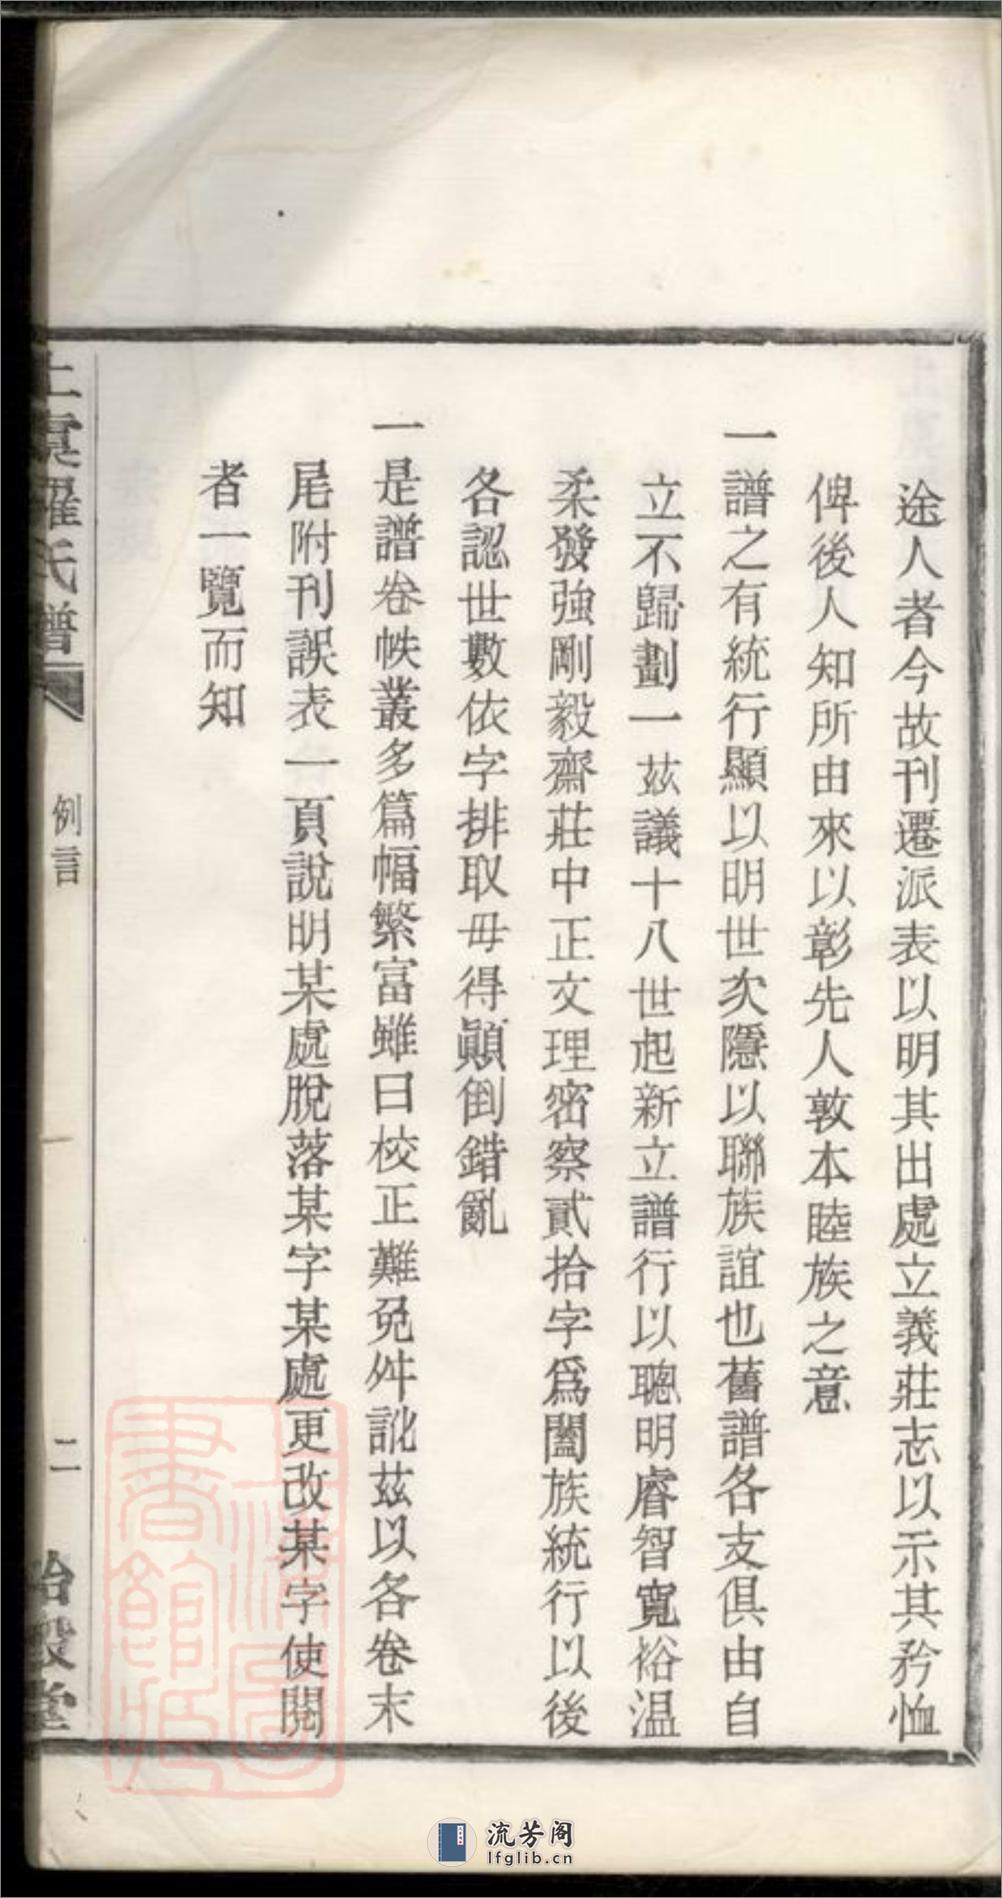 途人者今故刊遷派表以明其出處立義莊志以示其矜恤
俾後人知所由來以彰先人敦本睦族之意
一譜之有統行顯以明世次隱以聯族誼也舊譜各支俱由自
立不歸劃一茲議十八世起新立譜行以聰明睿智寬裕温
柔發強剛毅齋莊中正文理密察貳拾字爲闔族統行以後
各認世數依字排取毋得顚倒錯亂
一是譜卷帙叢多篇幅繁富雖曰校正難免舛訛茲以各卷末
尾附刊誤表一頁說明某處脫落某字某處更改某字使閱
者一覽而知
上虞羅氏譜
例言
二
上海圖書館藏
流芳阁
lfglib.cn